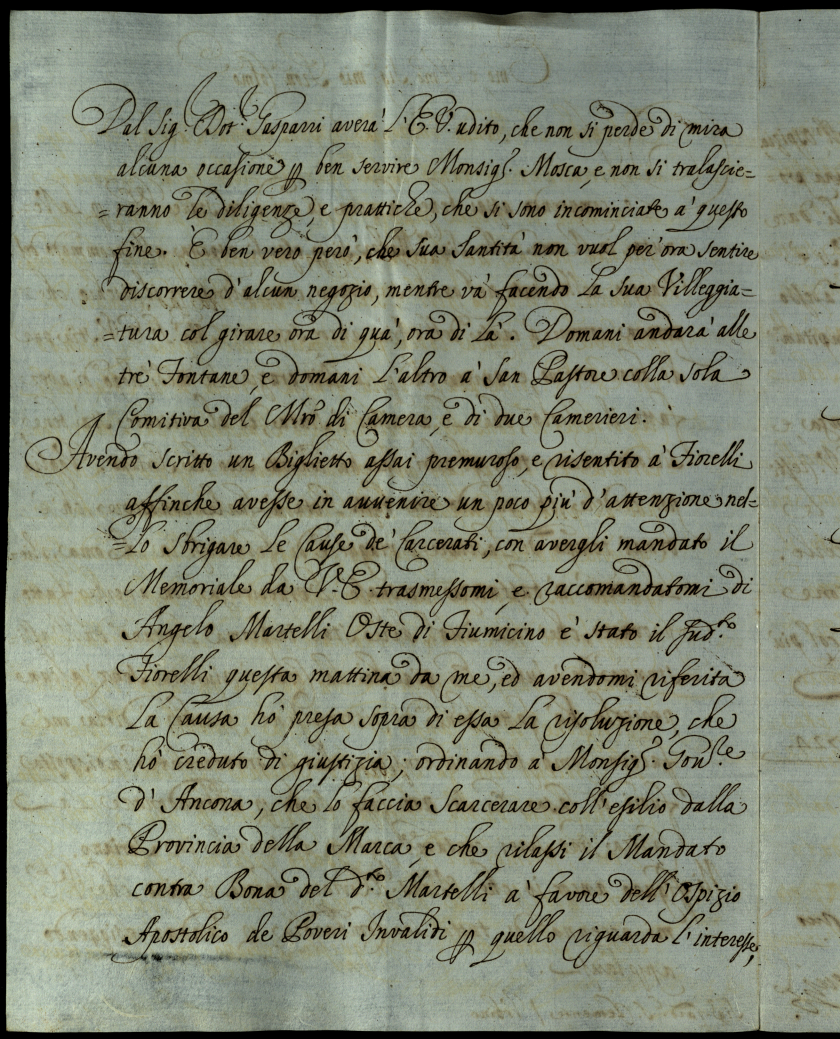 Dal Sig.r Dot.r Gasparri averà l'E.V. udito, che non si perde di mira
alcuna occasione p ben servire Monsig.r Mosca, e non si tralascie=
=ranno le diligenze, e prattiche, che si sono incominciate à questo
fine. È ben vero però, che sua Santità non vuol per ora sentire
discorrere d'alcun negozio, mentre và facendo la sua Villeggia=
=tura col girare ora di quà, ora di là. Domani andarà alle
trè Fontane, e domani l'altro à San Pastore colla sola
Comitiva del Mro di Camera, e di due Camerieri.
Avendo scritto un Biglietto assai premuroso, e risentito à Fiorelli
affinche avesse in avvenire un poco più d'attenzione nel=
=lo sbrigare le Cause de' Carcerati, con avergli mandato il
Memoriale da V.E. trasmessomi, e raccomandatomi di
Angelo Martelli Oste di Fiumicino è stato il sud.to
Fiorelli questa mattina da me, ed avendomi riferita
la Causa hò presa sopra di essa la risoluzione, che
hò creduto di giustizia; ordinando à Monsig.r Gov.re
d'Ancona, che lo faccia scarcerare coll'esilio dalla
Provincia della Marca, e che rilassi il Mandato
contra Bona del d.to Martelli à favore dell'Ospizio
Apostolico de Poveri Invalidi p quello riguarda l'interesse,